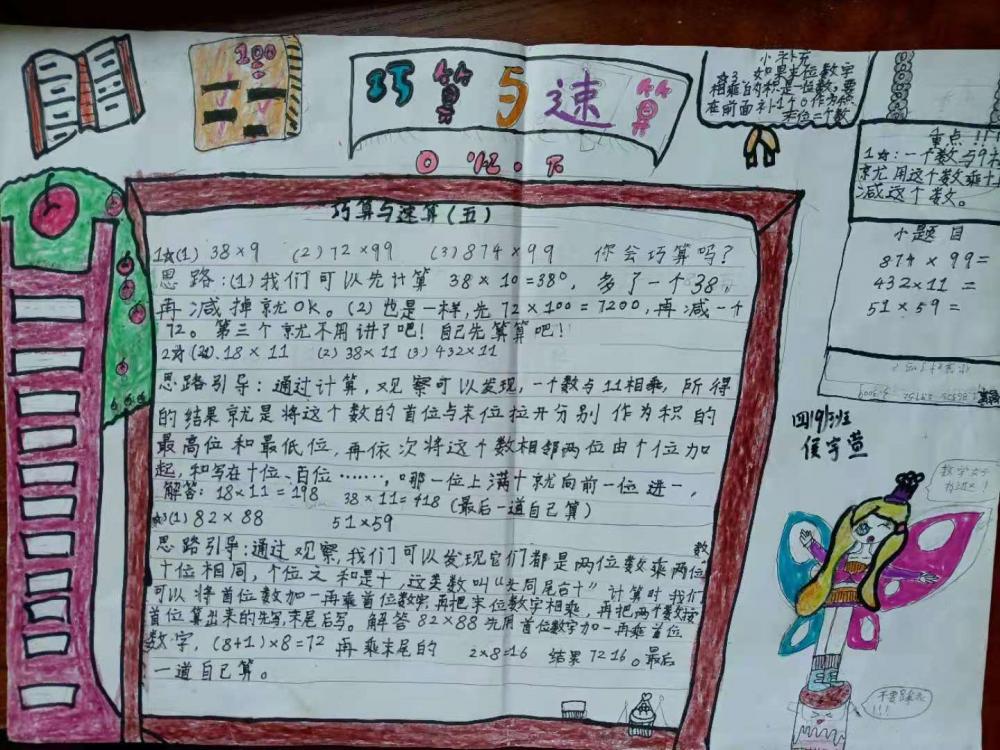 100
巧算与速算
小补充
如果末位数字
相乘的积是一位数，要
在前面补1个0作为积
末位二个数
重点！！！
1☆：一个数与9
就用这个数乘十
减这个数。
小题目
874×99=
432×11=
51×59=
巧算与速算(五)
1☆(1) 38×9 (2) 72×99 (3) 874×99 你会巧算吗？
思路：(1)我们可以先计算 38×10=380，多了一个38，
再减掉就OK。(2)也是一样，先72×100=7200，再减一个
72。第三个就不用讲了吧！自己先算算吧！
18×11 (2) 38×11 (3) 432×11
思路引导：通过计算，观察可以发现，一个数与11相乘，所得
的结果就是将这个数的首位与末位拉开分别作为积的
最高位和最低位，再依次将这个数相邻两位由个位加
起，和写在十位、百位……，哪一位上满十就向前一位进一，
解答：18×11=198 38×11=418 (最后一道自己算)
3(1) 82×88 51×59
思路引导：通过观察，我们可以发现它们都是两位数乘两位数
十位相同，个位之和是十，这类数叫“头同尾合十”计算时我们
可以将首位数加一再乘首位数字，再把末位数字相乘，再把两个数按
首位算出来的先写，末尾后写。解答82×88先用首位数字加一再乘首位
数字，(8+1)×8=72再乘末尾的 2×8=16 结果7216。最后
一道自己算。
四19班